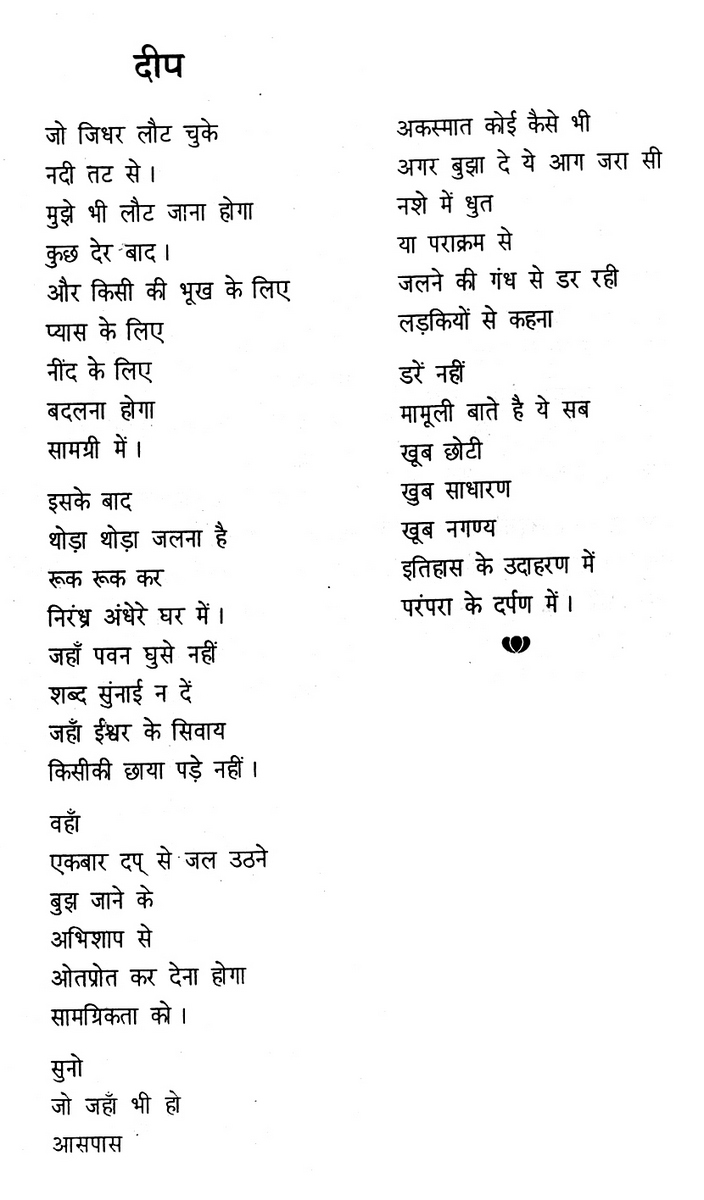 दीप
जो जिधर लौट चुके
नदी तट से ।
मुझे भी लौट जाना होगा
कुछ देर बाद ।
और किसी की भूख के लिए
प्यास के लिए
नींद के लिए
बदलना होगा
सामग्री में ।
इसके बाद
थोड़ा थोड़ा जलना है
रूक रूक कर
निरंध्र अंधेरे घर में ।
जहाँ पवन घुसे नहीं
शब्द सुंनाई न दें
जहाँ ईश्वर के सिवाय
किसीकी छाया पड़े नहीं ।
वहाँ
एकबार दप् से जल उठने
बुझ जाने के
अभिशाप से
ओतप्रोत कर देना होगा
सामग्रिकता को ।
सुनो
जो जहाँ भी हो
आसपास
अकस्मात कोई कैसे भी
अगर बुझा दे ये आग जरा सी
नशे में धुत
या पराक्रम से
जलने की गंध से डर रही
लड़कियों से कहना
डरें नहीं
मामूली बाते है ये सब
खूब छोटी
खुब साधारण
खूब नगण्य
इतिहास के उदाहरण में
परंपरा के दर्पण में ।